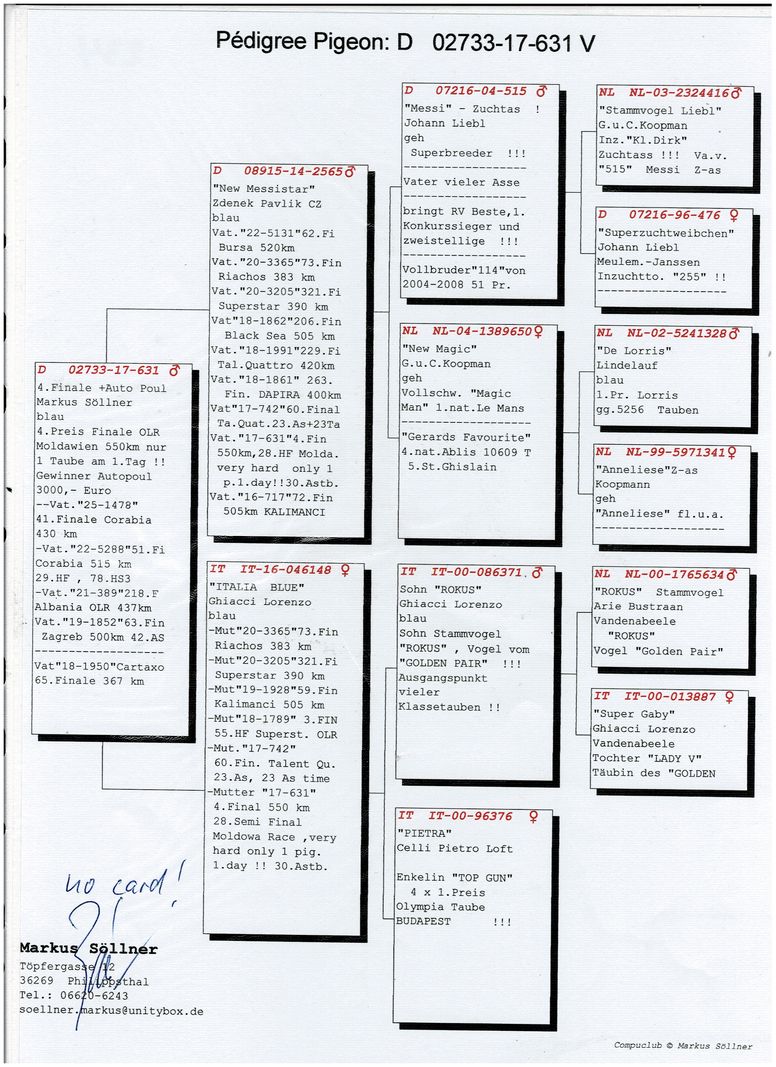 Pédigree Pigeon: D 02733-17-631 V
D 02733-17-631 ♂
4.Finale +Auto Poul
Markus Söllner
blau
4.Preis Finale OLR
Moldawien 550km nur
1 Taube am 1.Tag !!
Gewinner Autopoul
3000,- Euro
--Vat."25-1478"
41.Finale Corabia
430 km
-Vat."22-5288"51.Fi
Corabia 515 km
29.HF , 78.HS3
-Vat."21-389"218.F
Albania OLR 437km
Vat."19-1852"63.Fin
Zagreb 500km 42.AS
-------------------
Vat"18-1950"Cartaxo
65.Finale 367 km
D 08915-14-2565♂
"New Messistar"
Zdenek Pavlik CZ
blau
Vat."22-5131"62.Fi
Bursa 520km
Vat."20-3365"73.Fin
Riachos 383 km
Vat."20-3205"321.Fi
Superstar 390 km
Vat"18-1862"206.Fin
Black Sea 505 km
Vat."18-1991"229.Fi
Tal.Quattro 420km
Vat."18-1861" 263.
Fin. DAPIRA 400km
Vat"17-742"60.Final
Ta.Quat.23.As+23Ta
Vat."17-631"4.Fin
550km,28.HF Molda.
very hard only 1
p.1.day!!30.Astb.
Vat."16-717"72.Fin
505km KALIMANCI
IT IT-16-046148 ♀
"ITALIA BLUE"
Ghiacci Lorenzo
blau
-Mut"20-3365"73.Fin
Riachos 383 km
-Mut"20-3205"321.Fi
Superstar 390 km
-Mut"19-1928"59.Fin
Kalimanci 505 km
-Mut"18-1789" 3.FIN
55.HF Superst. OLR
-Mut."17-742"
60.Fin. Talent Qu.
23.As, 23 As time
-Mutter "17-631"
4.Final 550 km
28.Semi Final
Moldowa Race ,very
hard only 1 pig.
1.day !! 30.Astb.
D 07216-04-515 ♂
"Messi" - Zuchtas !
Johann Liebl
geh
Superbreeder !!!
------------------
Vater vieler Asse
------------------
bringt RV Beste,1.
Konkurssieger und
zweistellige !!!
------------------
Vollbruder"114"von
2004-2008 51 Pr.
NL NL-04-1389650♀
"New Magic"
G.u.C.Koopman
geh
Vollschw. "Magic
Man" 1.nat.Le Mans
-------------------
"Gerards Favourite"
4.nat.Ablis 10609 T
5.St.Ghislain
IT IT-00-086371. ♂
Sohn "ROKUS"
Ghiacci Lorenzo
blau
Sohn Stammvogel
"ROKUS" , Vogel vom
"GOLDEN PAIR" !!!
Ausgangspunkt
vieler
Klassetauben !!
IT IT-00-96376 ♀
"PIETRA"
Celli Pietro Loft
Enkelin "TOP GUN"
4 x 1.Preis
Olympia Taube
BUDAPEST !!!
NL NL-03-2324416♂
"Stammvogel Liebl"
G.u.C.Koopman
Inz."Kl.Dirk"
Zuchtass !!! Va.v.
"515" Messi Z-as
D 07216-96-476 ♀
"Superzuchtweibchen"
Johann Liebl
Meulem.-Janssen
Inzuchtto. "255" !!
-------------------
NL NL-02-5241328♂
"De Lorris"
Lindelauf
blau
1.Pr. Lorris
gg.5256 Tauben
NL NL-99-5971341♀
"Anneliese"Z-as
Koopmann
geh
"Anneliese" fl.u.a.
-------------------
NL NL-00-1765634♂
"ROKUS" Stammvogel
Arie Bustraan
Vandenabeele
"ROKUS"
Vogel "Golden Pair"
IT IT-00-013887 ♀
"Super Gaby"
Ghiacci Lorenzo
Vandenabeele
Tochter "LADY V"
Täubin des "GOLDEN
no card!
Markus Söllner
Töpfergasse 12
36269 Philippsthal
Tel.: 06620-6243
soellner.markus@unitybox.de
Compuclub © Markus Söllner